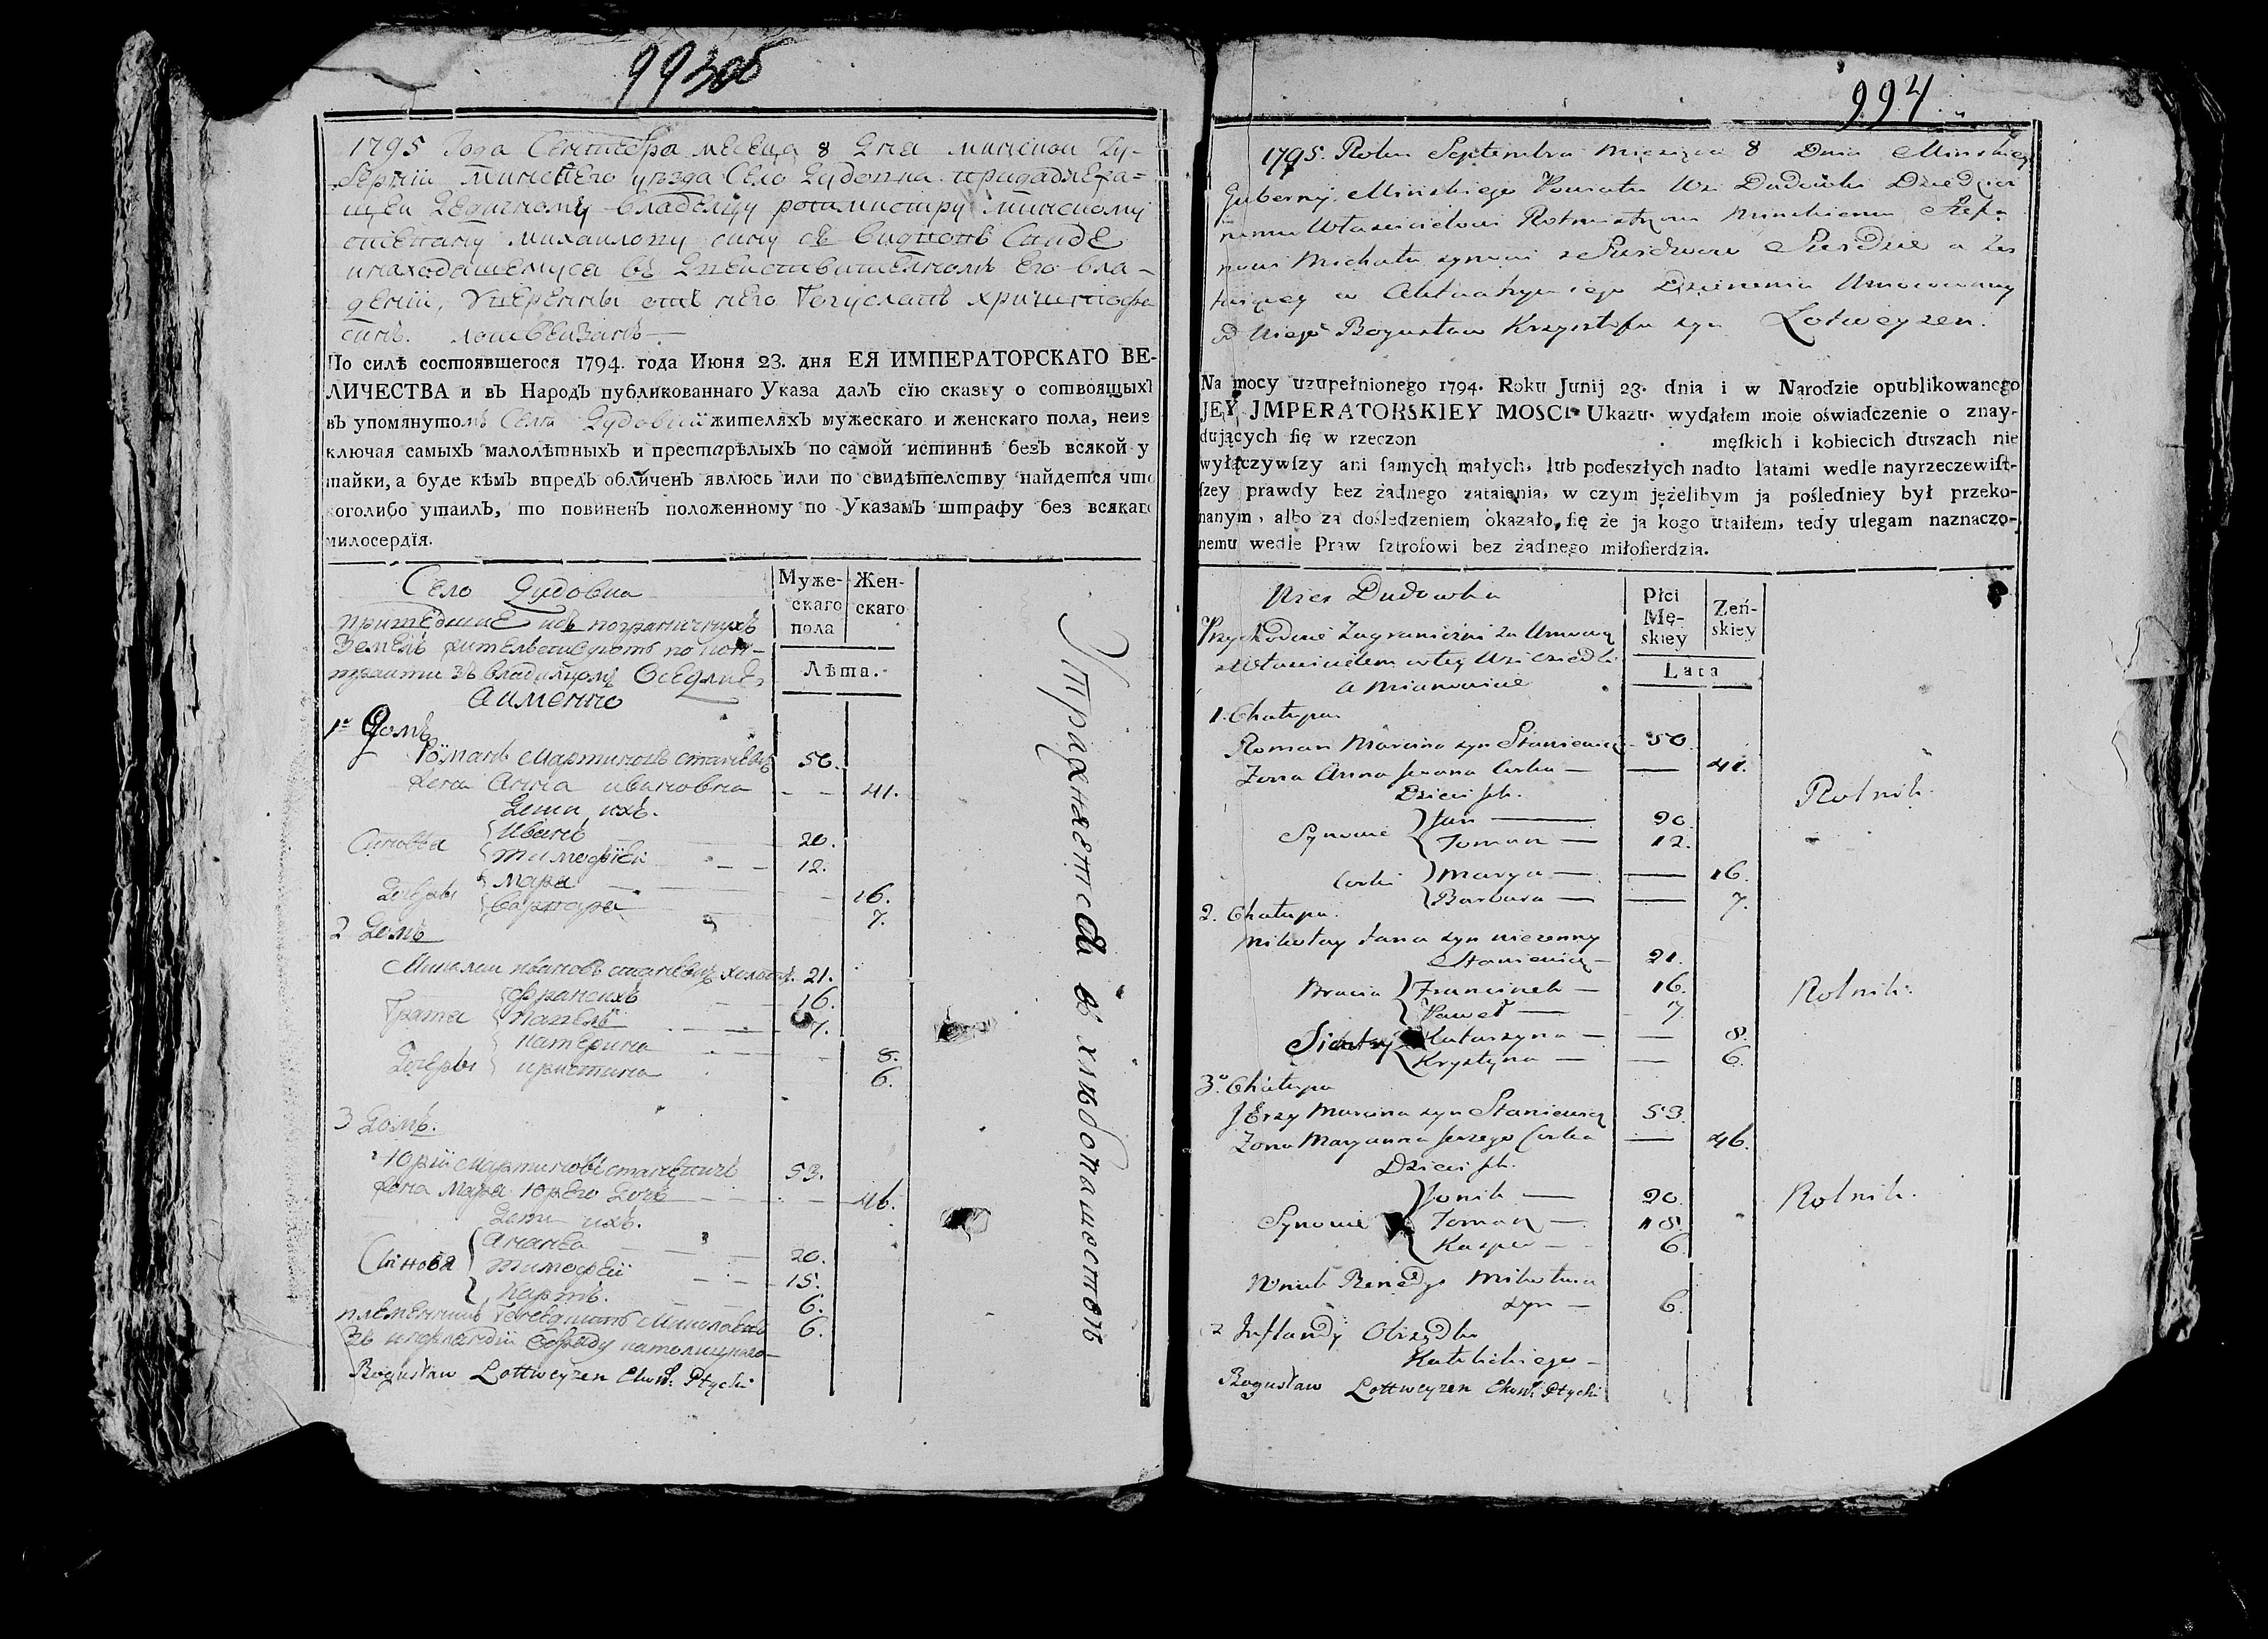 993об
1795 Года Сентебра месеца 8 Дна минской гу-
берніи минскего уезда Село Дудовка придадлежа=
щеи Дедичному владелцу ротмистру минскому
степану михаилову сину
инаходащемуса въ Дпеиствителномъ его вла-
дении, Уперенны отъ него Богуславъ христофа
синъ. лотвеизанъ
По силѣ состоявшегося 1794. года Июня 23. дня ЕЯ ИМПЕРАТОРСКАГО ВЕ-
ЛИЧЕСТВА и въ Народъ публикованнаго Указа далъ сїю сказку о сотвоящыхъ
въ упомянутомъ Селѣ Дудовки жителяхъ мужескаго и женскаго пола, неиз
ключая самыхъ малолѣтныхъ и престарѣлыхъ по самой истиннѣ безъ всякой у
тайки, а буде кѣмъ впредъ обличенъ явлюсь или по свидѣтелству найдется что
коголибо утаилъ, то повиненъ положенному по Указамъ штрафу без всякаго
милосердїя.
Село Дудовка
Мужескаго пола
Женскаго
Лѣта.
пришедшие изъ пограничнухъ
Земель жителствуютъ по кон-
тракти зъ владилцомъ Оседлие
аименно
1е Домъ
Романъ Мартиновъ станевичъ 50.
жена Анна ивановна — 41.
Дети ихъ.
Синовя { Иванъ 20.
{ тимофїей — 12.
Дочеры { Мара — 16.
{ варвара 7.
2 Домъ
Миколаи ивановъ станевичъ холостъ. 21.
Брата { францихъ — 16.
{ Павелъ — 7.
Дочеры { катерина — 8.
{ кристина 6.
3 Домъ.
Юрїи Мартиновъ станевичъ 53.
жена Мара Юрего Дочь — 46.
Дети ихъ.
Синовя { Ананеа 20.
{ тимофей — 15.
{ Каспъ. 6.
племенникъ Бенедиктъ Миколаевъ 6.
Зъ инфляндїи обряду католицкаго
Bogusław Lottweyzen Ekon: Ptycki
Упражняется въ хлѣбопашествѣ
994
1795. Roku Septembra Miesiąca 8 Dnia Minskiey
Guberny. Minskiego Powiatu Wsi Dudowki Dziedzicz
nemu Właścicielowi Rotmistrzowi Minskiemu Stefa
nowi Michała synowi
w Aktualnym iego Dzierżeniu Umocowany
od Niego Bogusław Krzysztofa syn Lotweyzen.
Na mocy uzupełnionego 1794. Roku Junij 23. dnia i w Narodzie opublikowanego
JEY JMPERATORSKIEY MOSCI Ukazu. wydałem moie oświadczenie o znay-
dujących ſię w rzeczon męſkich i kobiecich duszach nie
wyłączywſzy ani ſamych małych, lub podeszłych nadto latami wedle nayrzeczewiſt-
ſzey prawdy bez żadnego zataienia, w czym jeżelibym ja poſledniey był przeko-
nanym, albo za doſledzeniem okazało ſię że ja kogo utaiłem, tedy ulegam naznaczo-
nemu wedle Praw ſztrofowi bez żadnego miłoſierdzia.
Wies Dudowka
Płci Męskiey
Zeńskiey
Lata
Przychodnie Zagraniczni za Umową
z Właścicielem w tey Wsi osiedli
a Mianowicie
1. Chałupa
Roman Marcina syn Staniewicz 50.
Zona Anna Jwana Corka — 41.
Dzieci Jch.
Synowie { Jan — 20.
{ Tomasz — 12.
Corki { Marya — 16.
{ Barbara — 7.
Rolnik.
2. Chałupa.
Mikołay Jana syn niezenny
Staniewicz — 21.
Bracia { Franciszek — 16.
{ Paweł — 7.
Siostry { Katarzyna — 8.
{ Krystyna — 6.
Rolnik.
3o. Chałupa
JErzy Marcina syn Staniewicz 53.
Zona Maryanna Jerzego Corka — 46.
Dzieci Jch.
Synowie { — 20.
{ Tomasz — 15.
{ Kasper — 6.
Rolnik.
Wnuk Benedyt Mikołaia
syn — 6.
z Jnflandy Obrządku
Katolickiego —
Bogusław Lottweyzen Ekon: Ptycki